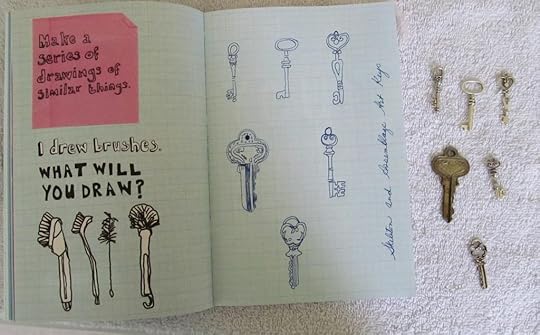 Make a
series of
drawings of
similar things.
I drew brushes.
WHAT WILL
YOU DRAW?
Skeleton and Assemblage Art Keys